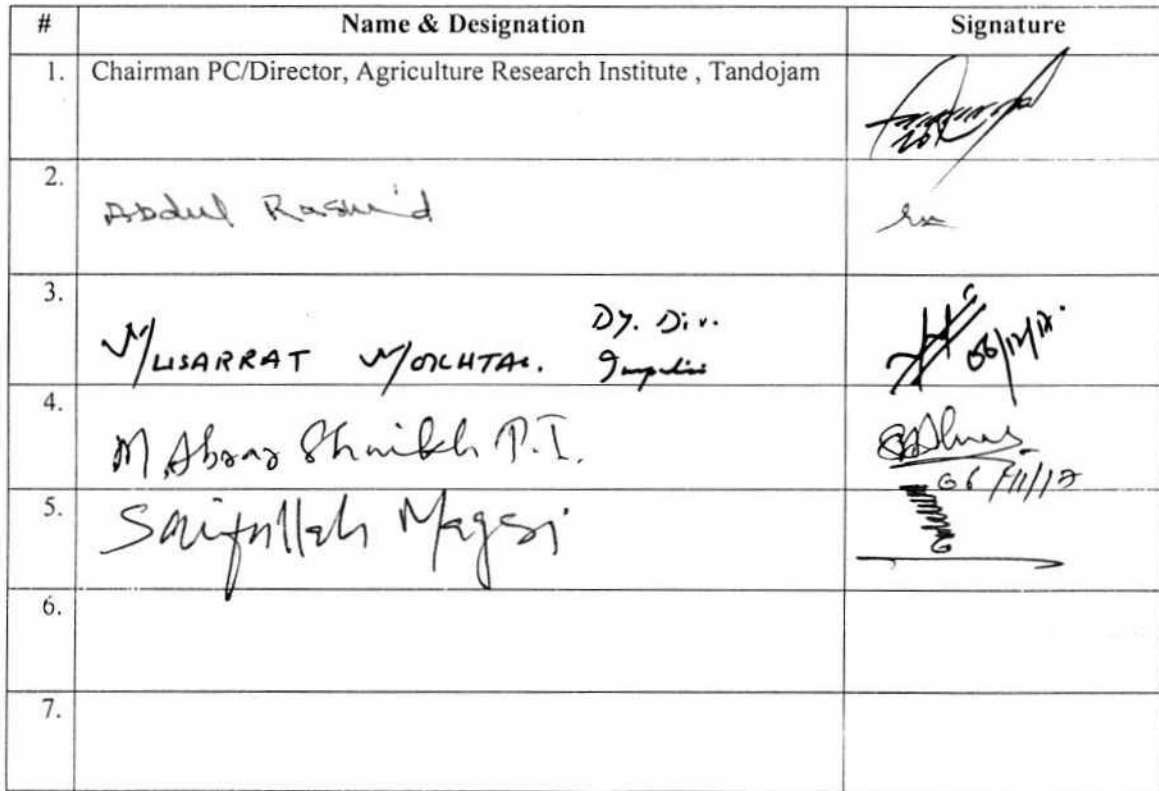 # Name & Designation Signature
1. Chairman PC/Director, Agriculture Research Institute , Tandojam
2. Abdul Rashid
3. MUSARRAT Dy. Div.
4. M. Abraz Shaikh P.I.
06/11/17
5. Saifullah Magsi
6.
7.